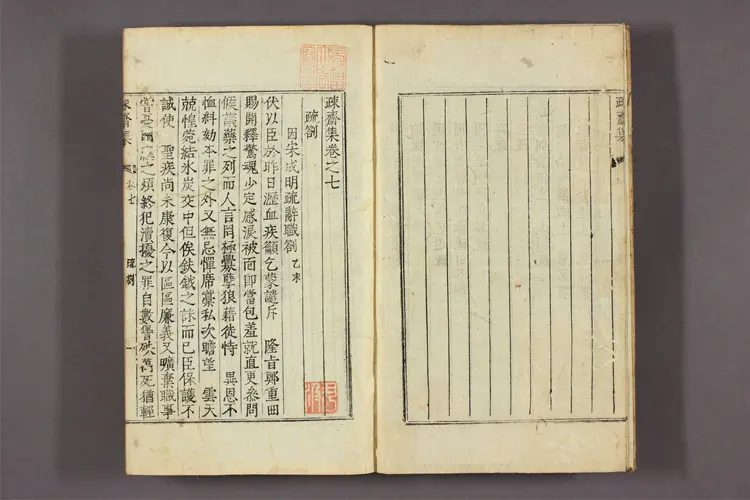 疎齋集
疎齋集卷之七
疏劄
因宋成明疏辭職劄 乙未
伏以臣於昨日瀝血疾籲乞蒙譴斥 隆旨鄭重曲
賜開釋驚魂少定感淚被面卽當包羞就直更參問
候議藥之列而人言罔極釁孽狼藉徒恃 異恩不
恤糾劾本罪之外又無忌憚席藁私次瞻望 雲天
兢惶菀結氷炭交中但俟鈇鉞之誅而已臣保護不
誠使 聖疾尚未康復今以區區廉義又曠棄職事
之煩終犯瀆擾之罪自數眚殃萬死猶輕
齋集
卷七
疏劄
一